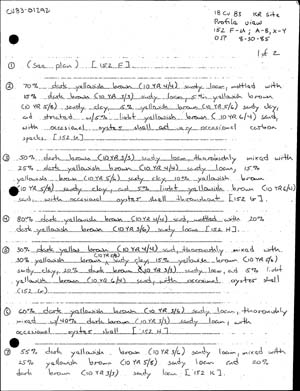 CU83-01292
18 CU 83 KR Site
Profile View
152 F-W; A-B, X-Y
DJP 8-30-85
1 of 2
① (see plan) [152 F]
② 70% dark yellowish brown (10 YR 4/4) sandy loam, mottled with
15% dark brown (10 YR 3/3) sandy loam, 5% yellowish brown
(10 YR 5/8) sandy clay, 5% yellowish brown (10 YR 5/6) sandy clay,
and streaked w/5% light yellowish brown (10 YR 6/4) sand,
with occasional oyster shell and very occasional carbon
specks. [152 G]
③ 50% dark brown (10 YR 3/3) sandy loam thoroughly mixed with
25% dark yellowish brown (10 YR 4/4) sandy loam, 15%
yellowish brown (10 YR 5/6) sandy clay, 10% yellowish brown
(10 YR 5/8) sandy clay, and 5% light yellowish brown (10 YR 6/4)
sand, with occasional oyster shell throughout [152 G].
④ 80% dark yellowish brown (10 YR 4/4) sand, mottled with 20%
dark yellowish brown (10 YR 3/6) sandy loam [152 H].
⑤ 30% dark yellow brown (10 YR 4/4) sand, thoroughly mixed with
30% yellowish brown sandy clay, 15% yellowish brown (10 YR 5/6)
sandy clay, 20% dark brown (10 YR 3/3) sandy loam, and 5% light
yellowish brown (10 YR 6/4) sand, with occasional oyster shell
⑥ 60% dark yellowish brown (10 YR 3/6) sandy loam, thoroughly
mixed w/40% dark brown (10 YR 3/3) sandy loam, with
occasional oyster shell [152 H]
⑦ 55% dark yellowish brown (10 YR 3/6) sandy loam, mixed with
25% yellowish brown (10 YR 5/8) sandy loam and 20%
dark brown (10 YR 3/3) sandy loam [152 K].